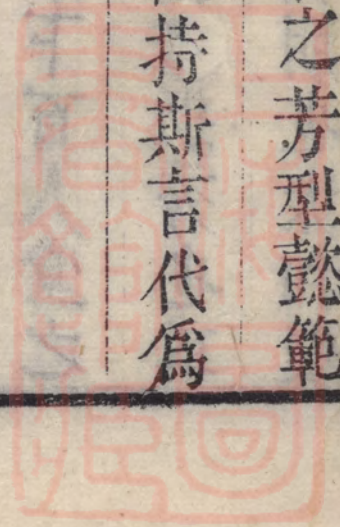 之芳型懿範
持斯言代爲